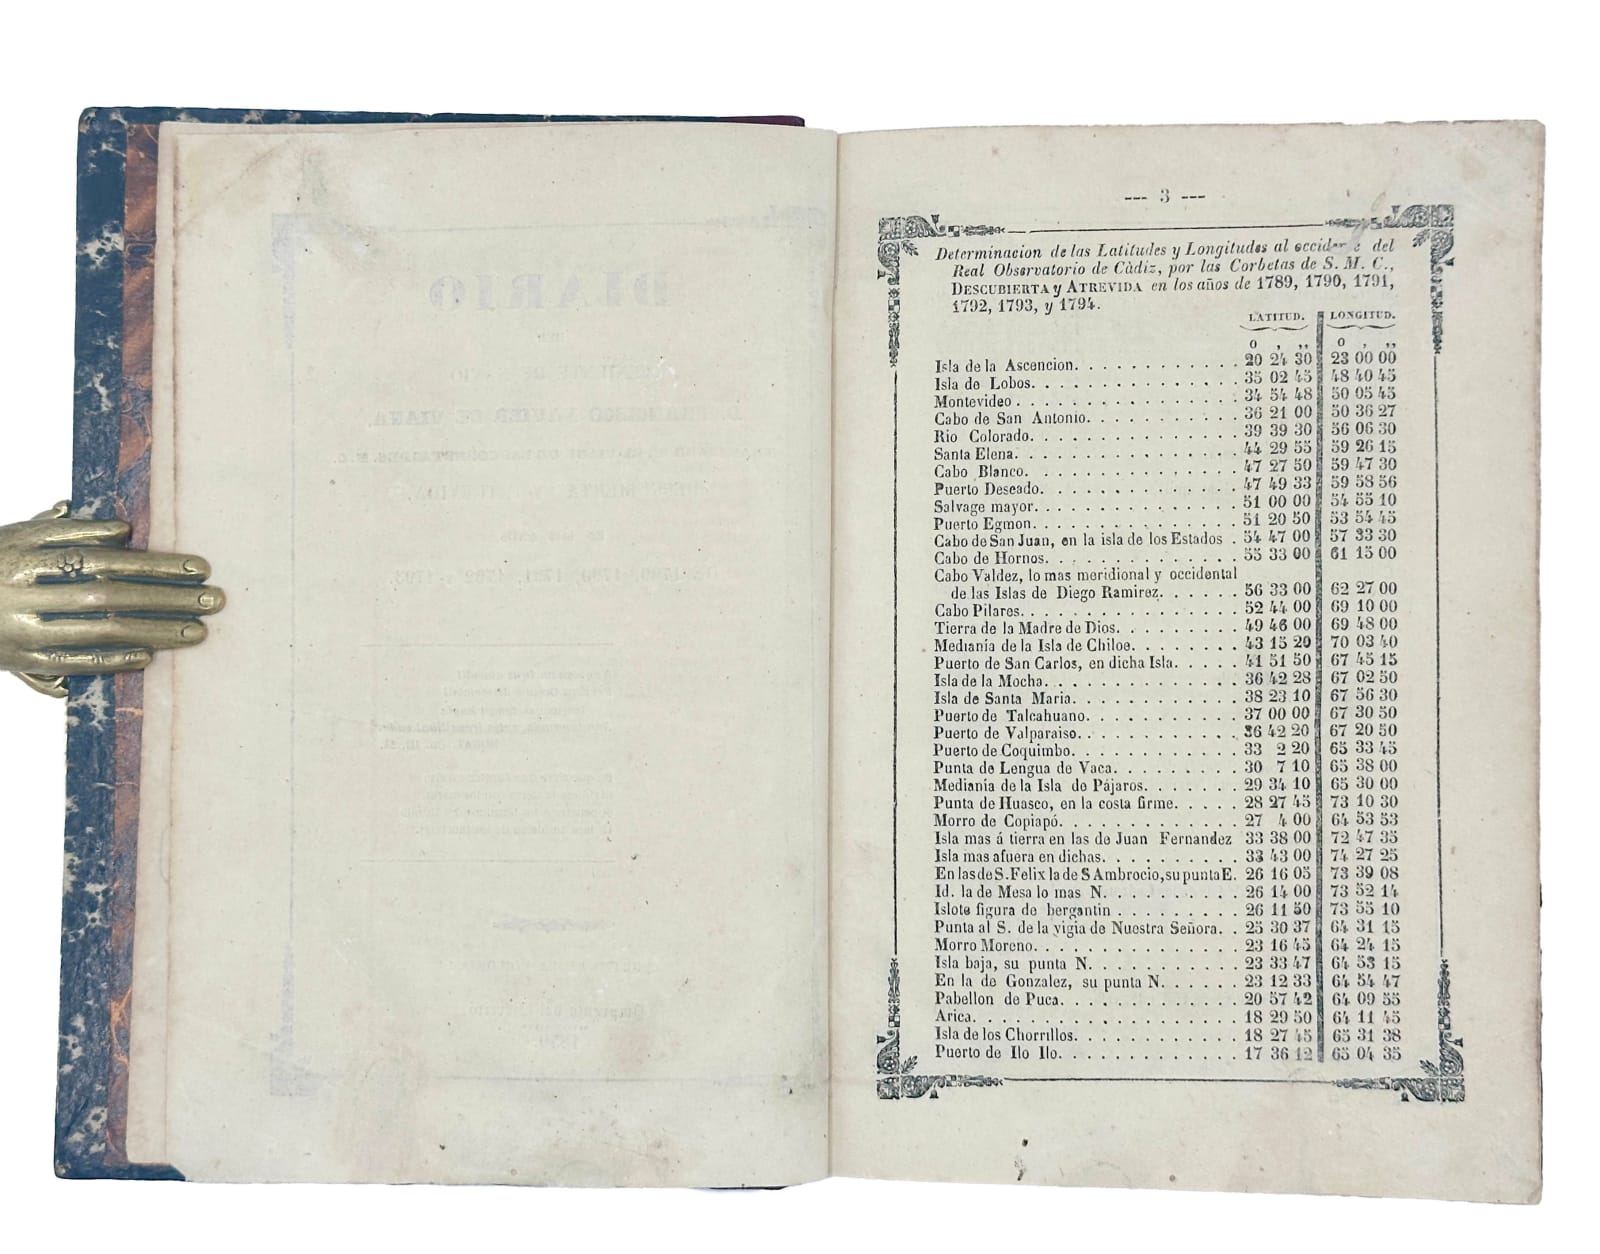 --- 3 ---
Determinacion de las Latitudes y Longitudes al occidente del
Real Observatorio de Càdiz, por las Corbetas de S. M. C.,
DESCUBIERTA y ATREVIDA en los años de 1789, 1790, 1791,
1792, 1793, y 1794.
LATITUD. LONGITUD.
o , ,, o , ,,
Isla de la Ascencion. 20 24 30 23 00 00
Isla de Lobos. 35 02 45 48 40 45
Montevideo 34 54 48 50 05 45
Cabo de San Antonio. 36 21 00 50 36 27
Rio Colorado. 39 39 30 56 06 30
Santa Elena. 44 29 55 59 26 15
Cabo Blanco. 47 27 50 59 47 30
Puerto Deseado. 47 49 33 59 58 56
Salvage mayor. 51 00 00 54 55 10
Puerto Egmon. 51 20 50 53 54 45
Cabo de San Juan, en la isla de los Estados . 54 47 00 57 33 30
Cabo de Hornos. 55 33 00 61 15 00
Cabo Valdez, lo mas meridional y occidental
de las Islas de Diego Ramirez. 56 33 00 62 27 00
Cabo Pilares. 52 44 00 69 10 00
Tierra de la Madre de Dios. 49 46 00 69 48 00
Medianía de la Isla de Chiloe. 43 15 20 70 03 40
Puerto de San Carlos, en dicha Isla. 41 51 50 67 45 15
Isla de la Mocha. 36 42 28 67 02 50
Isla de Santa Maria. 38 23 10 67 56 30
Puerto de Talcahuano. 37 00 00 67 30 50
Puerto de Valparaiso. 36 42 20 67 20 50
Puerto de Coquimbo. 33 2 20 65 33 45
Punta de Lengua de Vaca. 30 7 10 65 38 00
Medianía de la Isla de Pájaros. 29 34 10 65 30 00
Punta de Huasco, en la costa firme. 28 27 45 73 10 30
Morro de Copiapó. 27 4 00 64 53 53
Isla mas á tierra en las de Juan Fernandez 33 38 00 72 47 35
Isla mas afuera en dichas. 33 43 00 74 27 25
En las de S. Felix la de S Ambrocio, su punta E. 26 16 05 73 39 08
Id. la de Mesa lo mas N. 26 14 00 73 52 14
Islote figura de bergantin 26 11 50 73 55 10
Punta al S. de la vigia de Nuestra Señora. 25 30 37 64 31 15
Morro Moreno. 23 16 45 64 24 15
Isla baja, su punta N. 23 33 47 64 53 15
En la de Gonzalez, su punta N. 23 12 33 64 54 47
Pabellon de Puca. 20 57 42 64 09 55
Arica. 18 29 50 64 11 45
Isla de los Chorrillos. 18 27 45 65 31 38
Puerto de Ilo Ilo. 17 36 12 65 04 35